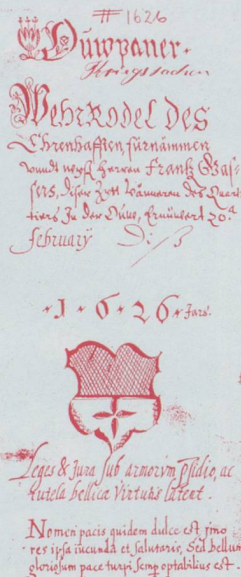 # 1626
Öuwpaner.
Kriegssachen
WehrRodel des
Ehrenhafften, fürnämmen
vnndt wysen Herren Frantz Gas-
sers, diser Zytt Vänneren des Quart
tiers In der Ouw, Ernüwert 20.
february
· 1 · 6 · 2 6 · Jars.
Leges & Jura sub armorum psidio, ac
tutela bellicæ Virtutis latent.
Nomen pacis quidem dulce est, imo
res ipsa iucunda et salutaris, Sed bellum
gloriosum pace turpi semp optabilius est.